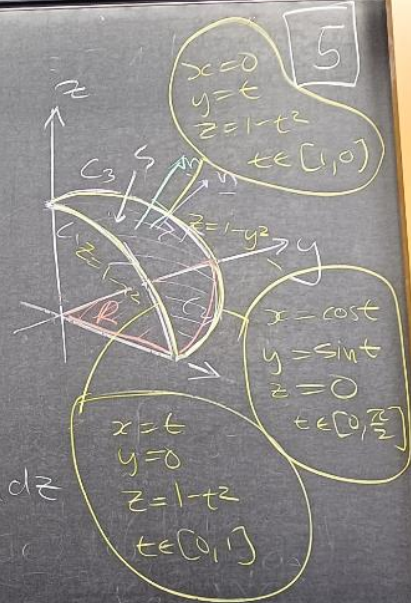 5
x=0
y=t
z=1-t²
t∈[1,0]
z
C₃
S
n
n
C₁
z=1-y²
y
R
C₂
x=cost
y=sint
z=0
t∈[0,π/2]
x=t
y=0
z=1-t²
t∈[0,1]
dz